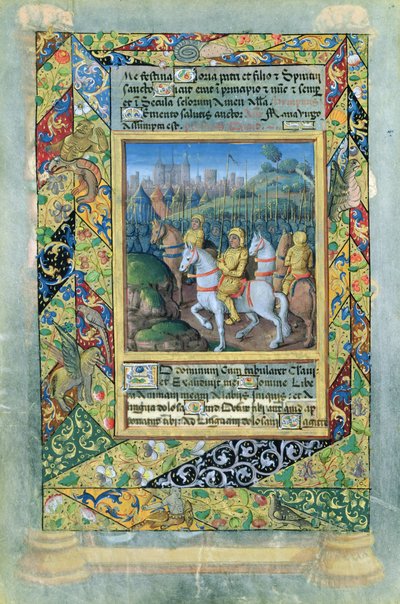 Me festina Gloria patri et filio & Spiritui
sancto Sicut erat i principio & nuc & semp
et i Secula selorum Amen Alla.
Memento salutis auctor Maria virgo
Assumpta est.
AD dominum Cum tribularer Clam
et Exaudivit me Domine Libe
ra Animam meam Alabiis Iniquis: et A
lingua dolosa Quid Detur tibi aut quid ap
ponatur tibi: Ad Linguam dolosam Sagitte